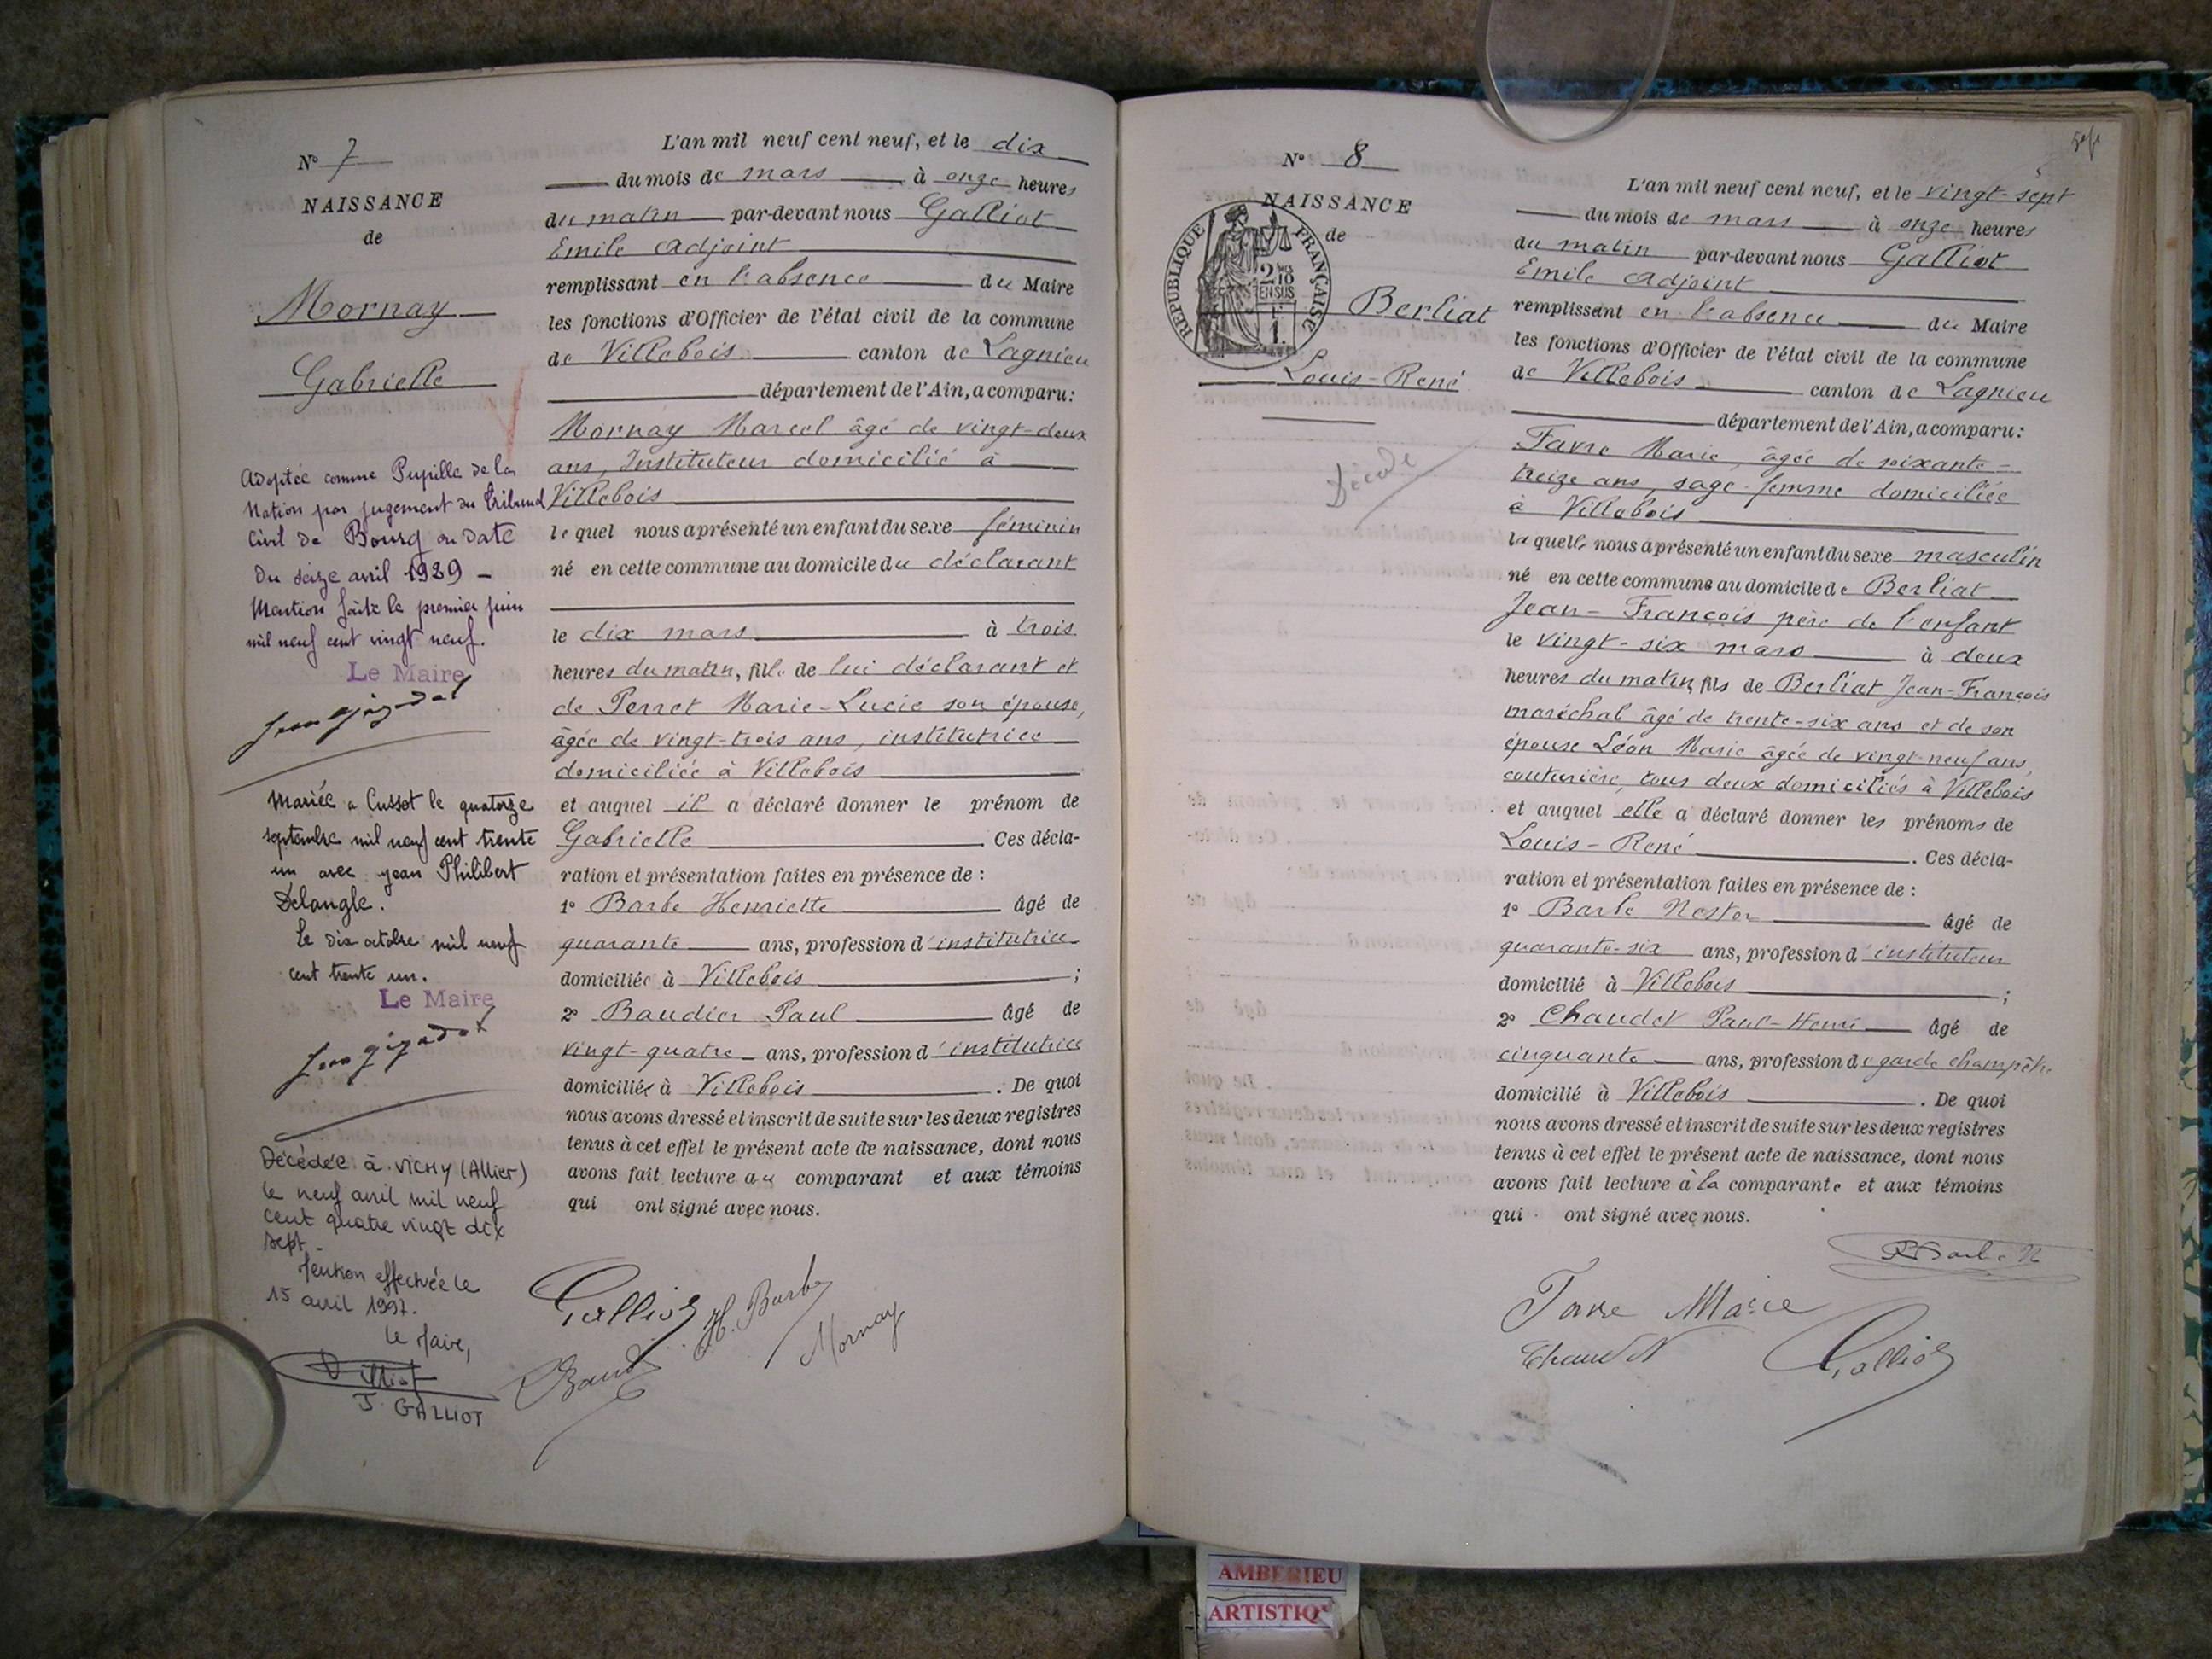 N° 7
NAISSANCE
de
Mornay
Gabrielle
Adoptée comme Pupille de la
Nation par jugement du tribunal
Civil de Bourg en date
du seize avril 1929 -
Mention faite le premier juin
mil neuf cent vingt neuf.
Le Maire
Mariée à Cusset le quatorze
septembre mil neuf cent trente
un avec Jean Philibert
Delangle.
Le dix octobre mil neuf
cent trente un.
Le Maire
Décédée à VICHY (Allier)
le neuf avril mil neuf
cent quatre vingt dix
sept -
Mention effectuée le
15 avril 1997.
Le Maire,
J. GALLIOT
L'an mil neuf cent neuf, et le dix
du mois de mars à onze heures
du matin par-devant nous Galliot
Emile adjoint
remplissant en l'absence du Maire
les fonctions d'Officier de l'état civil de la commune
de Villebois canton de Lagnieu
département de l'Ain, a comparu:
Mornay Marcel âgé de vingt-deux
ans, Instituteur domicilié à
Villebois
lequel nous a présenté un enfant du sexe féminin
né en cette commune au domicile du déclarant
le dix mars à trois
heures du matin, fille de lui déclarant et
de Perret Marie-Lucie son épouse,
âgée de vingt-trois ans, institutrice
domiciliée à Villebois
et auquel il a déclaré donner le prénom de
Gabrielle Ces décla-
ration et présentation faites en présence de :
1° Barbe Henriette âgé de
quarante ans, profession d'institutrice
domiciliée à Villebois ;
2° Baudier Paul âgé de
vingt-quatre ans, profession d'institutrice
domicilié à Villebois . De quoi
nous avons dressé et inscrit de suite sur les deux registres
tenus à cet effet le présent acte de naissance, dont nous
avons fait lecture au comparant et aux témoins
qui ont signé avec nous.
Galliot H. Barbe
Mornay
N° 8
NAISSANCE
de
RÉPUBLIQUE FRANÇAISE
2/10
EN SUS
Berliat
Louis-René
Décédé
L'an mil neuf cent neuf, et le vingt-sept
du mois de mars à onze heures
du matin par-devant nous Galliot
Emile adjoint
remplissant en l'absence du Maire
les fonctions d'Officier de l'état civil de la commune
de Villebois canton de Lagnieu
département de l'Ain, a comparu:
Favre Marie, âgée de soixante-
treize ans, sage-femme domiciliée
à Villebois
laquelle nous a présenté un enfant du sexe masculin
né en cette commune au domicile de Berliat
Jean-François père de l'enfant
le vingt-six mars à deux
heures du matin, fils de Berliat Jean-François
maréchal âgé de trente-six ans et de son
épouse Léon Marie âgée de vingt-neuf ans,
couturière, tous deux domiciliés à Villebois
et auquel elle a déclaré donner les prénoms de
Louis-René . Ces décla-
ration et présentation faites en présence de :
1° Barbe Nestor âgé de
quarante-six ans, profession d'instituteur
domicilié à Villebois ;
2° Chaudet Paul-Henri âgé de
cinquante ans, profession de garde champêtre
domicilié à Villebois . De quoi
nous avons dressé et inscrit de suite sur les deux registres
tenus à cet effet le présent acte de naissance, dont nous
avons fait lecture à la comparante et aux témoins
qui ont signé avec nous.
Favre Marie
Galliot
AMBERIEU
ARTISTIQ